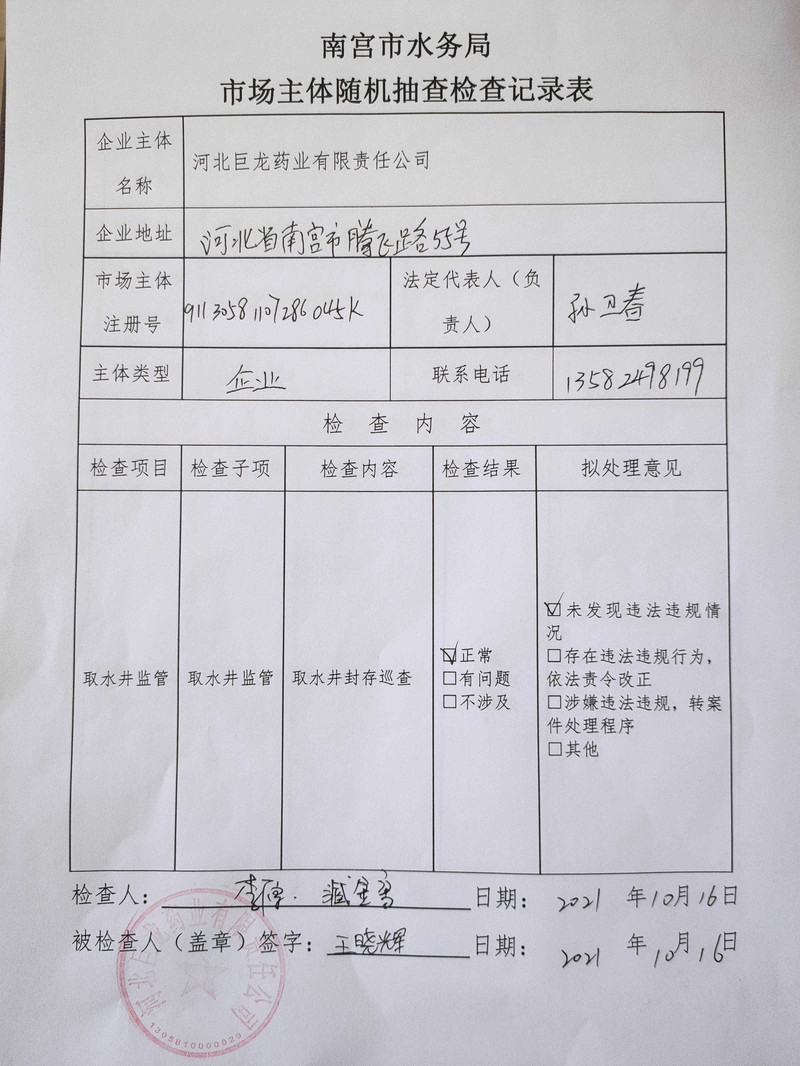 南宫市水务局
市场主体随机抽查检查记录表
企业主体
名称
河北巨龙药业有限责任公司
企业地址
河北省南宫市腾飞路55号
市场主体
注册号
91130581107286045K
法定代表人（负
责人）
孙卫春
主体类型
企业
联系电话
13582498199
检查内容
检查项目 检查子项 检查内容 检查结果 拟处理意见
取水井监管 取水井监管 取水井封存巡查
☑正常
□有问题
□不涉及
☑未发现违法违规情
况
□存在违法违规行为，
依法责令改正
□涉嫌违法违规，转案
件处理程序
□其他
检查人： 日期： 2021 年10月16日
被检查人（盖章）签字：王晓辉 日期： 2021 年10月16日
河北巨龙药业有限责任公司
1305810000929